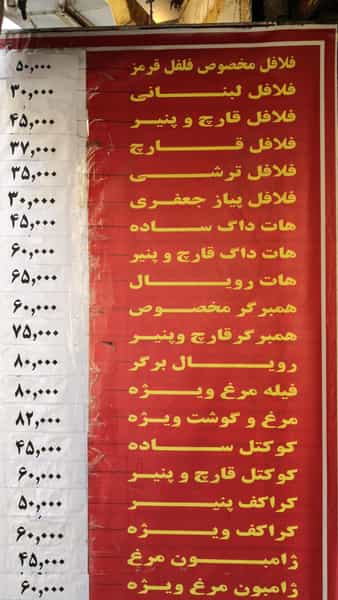 فلافل مخصوص فلفل قرمز ۵۰,۰۰۰
فلافل لبنانی ۳۰,۰۰۰
فلافل قارچ و پنیر ۴۵,۰۰۰
فلافل قارچ ۳۷,۰۰۰
فلافل ترشی ۳۵,۰۰۰
فلافل پیاز جعفری ۳۰,۰۰۰
هات داگ ساده ۴۵,۰۰۰
هات داگ قارچ و پنیر ۶۰,۰۰۰
هات رویال ۶۵,۰۰۰
همبرگر مخصوص ۶۰,۰۰۰
همبرگر قارچ وپنیر ۷۵,۰۰۰
رویال برگر ۸۰,۰۰۰
فیله مرغ ویژه ۸۰,۰۰۰
مرغ و گوشت ویژه ۸۲,۰۰۰
کوکتل ساده ۴۵,۰۰۰
کوکتل قارچ و پنیر ۶۰,۰۰۰
کراکف پنیر ۵۰,۰۰۰
کراکف ویژه ۶۰,۰۰۰
ژامبون مرغ ۴۵,۰۰۰
ژامبون مرغ ویژه ۶۰,۰۰۰